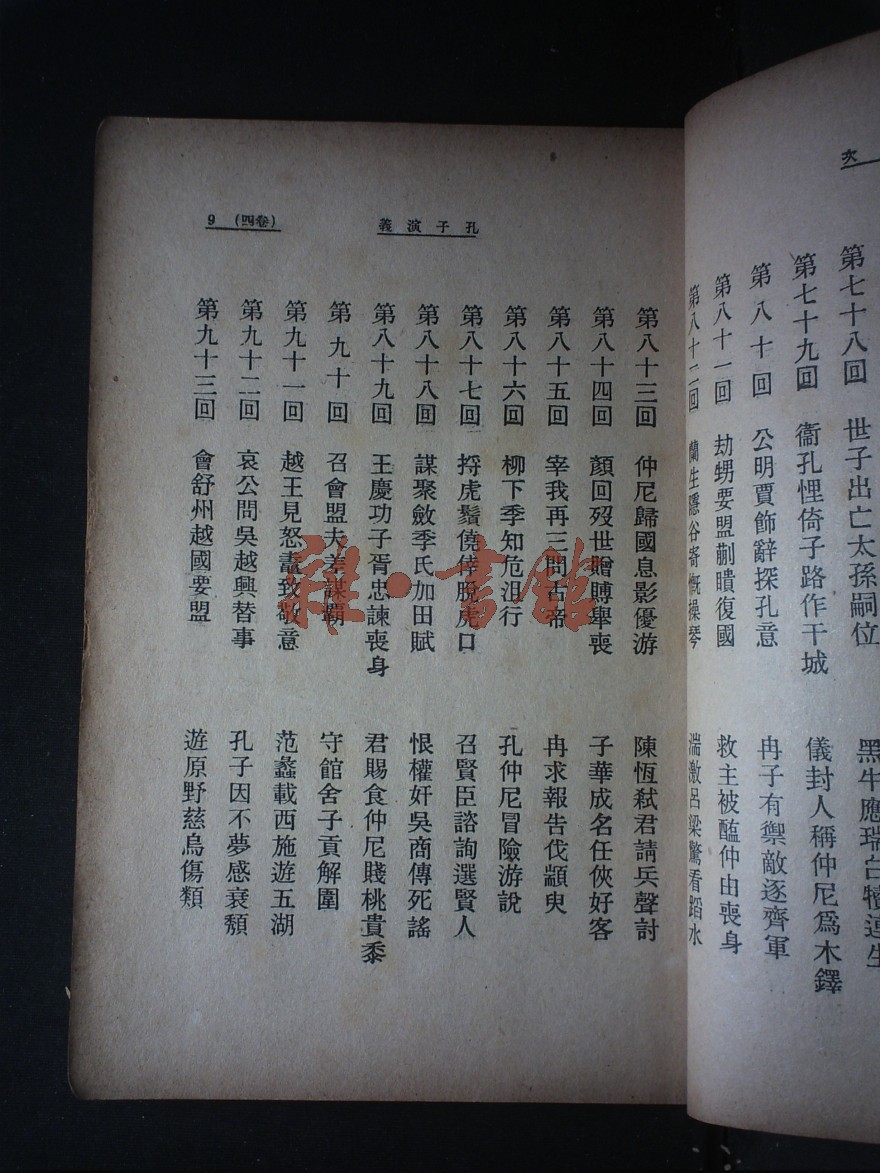 次
第七十八回 世子出亡太孫嗣位 黑牛應瑞白犢連生
第七十九回 衞孔悝倚子路作干城 儀封人稱仲尼爲木鐸
第八十回 公明賈飾辭探孔意 冉子有禦敵逐齊軍
第八十一回 劫甥要盟蒯聵復國 救主被醢仲由喪身
第八十二回 蘭生隱谷寄慨操琴 湍激呂梁驚看蹈水
孔子演義 (卷四) 9
第八十三回 仲尼歸國息影優游 陳恆弒君請兵聲討
第八十四回 顏回歿世贈賻舉喪 子華成名任俠好客
第八十五回 宰我再三問古帝 冉求報告伐顓臾
第八十六回 柳下季知危沮行 孔仲尼冒險游說
第八十七回 捋虎鬚僥倖脫虎口 召賢臣諮詢選賢人
第八十八回 謀聚斂季氏加田賦 恨權奸吳商傳死謠
第八十九回 王慶功子胥忠諫喪身 君賜食仲尼賤桃貴黍
第九十回 召會盟夫差謀霸 守館舍子貢解圍
第九十一回 越王見怒鼃致敬意 范蠡載西施遊五湖
第九十二回 哀公問吳越興替事 孔子因不夢感衰頹
第九十三回 會舒州越國要盟 遊原野慈烏傷類
雜·書館